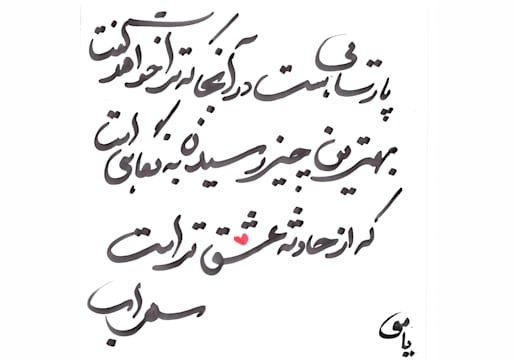 پارسایی هست در آنجا که ترا خواهد گفت
بهترین چیز رسیدن به نگاهی است
که از حادثه عشق تر است
سهراب
یامو